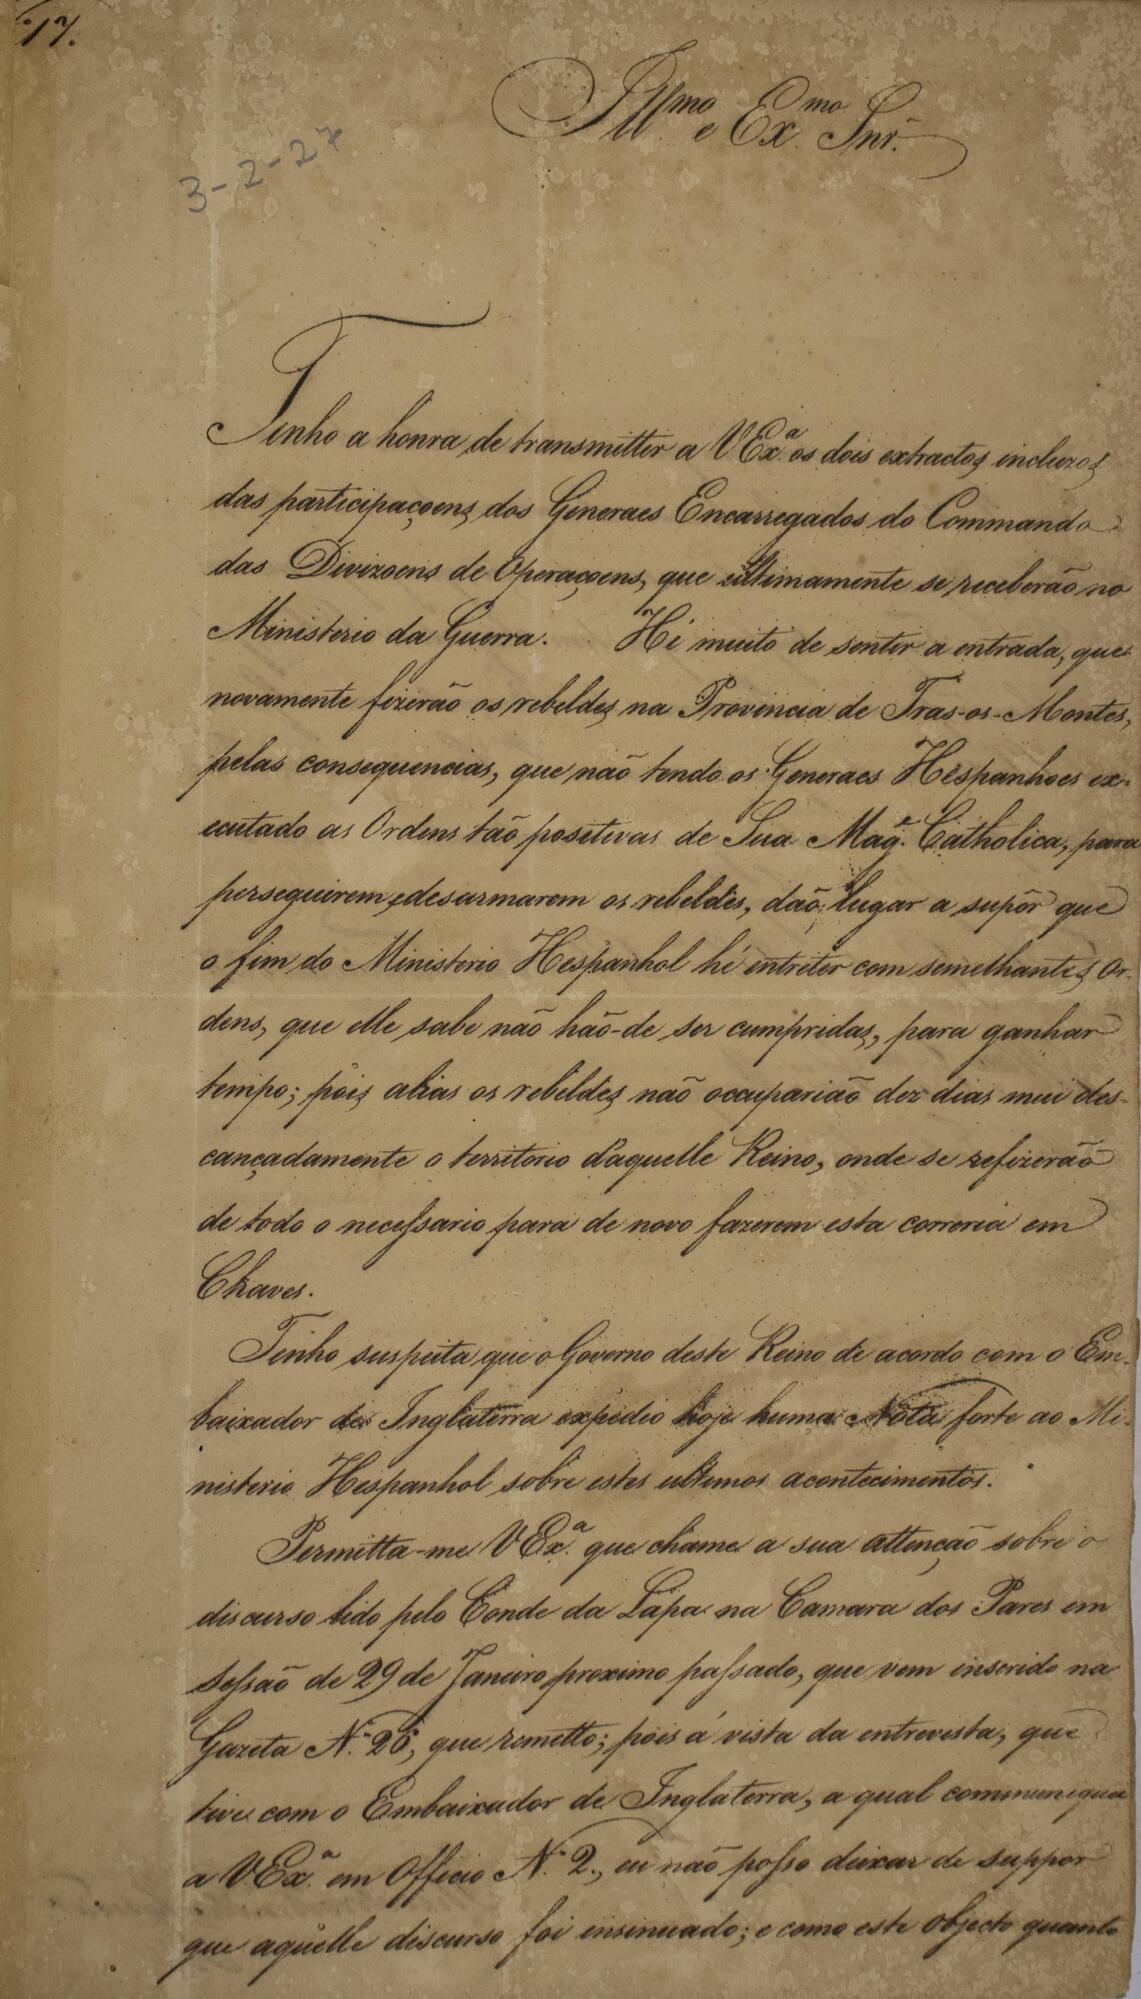 17.
Illmo e Exmo Snr.
3-2-27
Tenho a honra de transmittir a VExa. os dois extractos incluzos
das participaçoens dos Generaes Encarregados do Commando
das Divizoens de Operaçoens, que ultimamente se receberão no
Ministerio da Guerra. Hé muito de sentir a entrada, que
novamente fizerão os rebeldes na Provincia de Tras-os-Montes,
pelas consequencias, que não tendo os Generaes Hespanhoes ex-
ecutado as Ordens tão positivas de Sua Mage. Catholica, para
perseguirem, e desarmarem os rebeldes, dão lugar a supôr que
o fim do Ministerio Hespanhol hé entreter com semelhantes Or-
dens, que elle sabe não hão-de ser cumpridas, para ganhar
tempo; pois alias os rebeldes não occuparião dez dias mui des-
cançadamente o territorio d'aquelle Reino, onde se refizerão
de todo o necessario para de novo fazerem esta correria em
Chaves.
Tenho suspeita que o Governo deste Reino de acordo com o Em-
baixador de Inglaterra expedio hoje huma Nota forte ao Mi-
nisterio Hespanhol sobre estes ultimos acontecimentos.
Permitta-me VExa. que chame a sua attenção sobre o
discurso lido pelo Conde da Lapa na Camara dos Pares em
Sessão de 29 de Janeiro proximo passado, que vem inserido na
Gazeta N.º 26, que remetto; pois á vista da entrevista, que
tive com o Embaixador de Inglaterra, a qual communiquei
a VExa. em Officio N.º 2., eu não posso deixar de suppor
que aquelle discurso foi insinuado; e como este objecto quanto